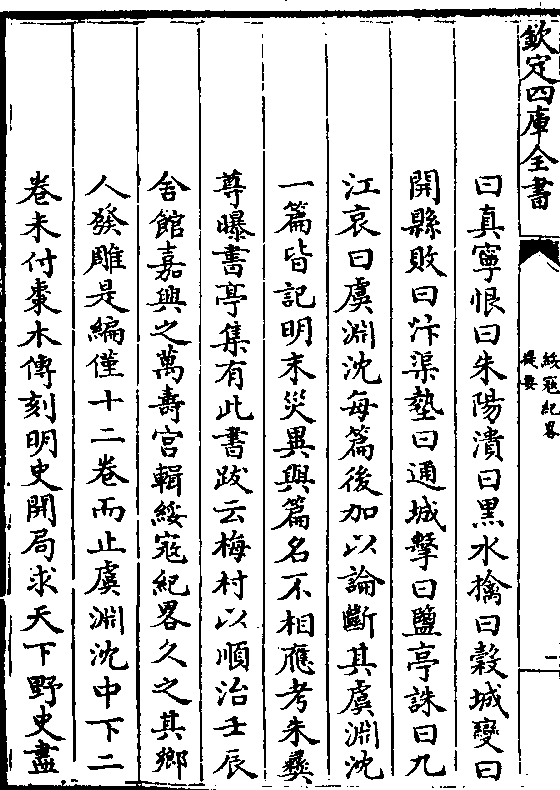 欽定四庫全書
綏寇紀畧
提要
二
曰真寧恨曰朱陽潰曰黑水擒曰穀城變曰
開縣敗曰汴渠墊曰通城擊曰鹽亭誅曰九
江哀曰虞淵沈每篇後加以論斷其虞淵沈
一篇皆記明末災異與篇名不相應考朱彝
尊曝書亭集有此書跋云梅村以順治壬辰
舍館嘉興之萬壽宮輯綏寇紀畧久之其鄉
人發雕是編僅十二卷而止虞淵沈中下二
卷未付棗木傳刻明史開局求天下野史盡